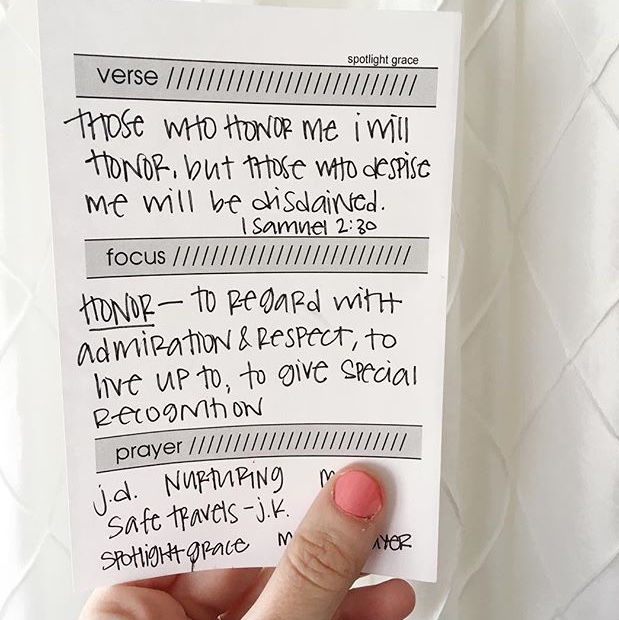 spotlight grace
verse //////////////////////////
THOSE WHO HONOR me i will
HONOR, but THOSE WHO despise
me will be disdained.
1 Samuel 2:30
focus //////////////////////////
HONOR - to REgaRd WITH
admiRATION & RESPECT, to
live up to, to give special
RECOgnition
prayer ////////////////////////
j.d. NURTURING
Safe TRavels - j.k.
SPOTlighT gRace